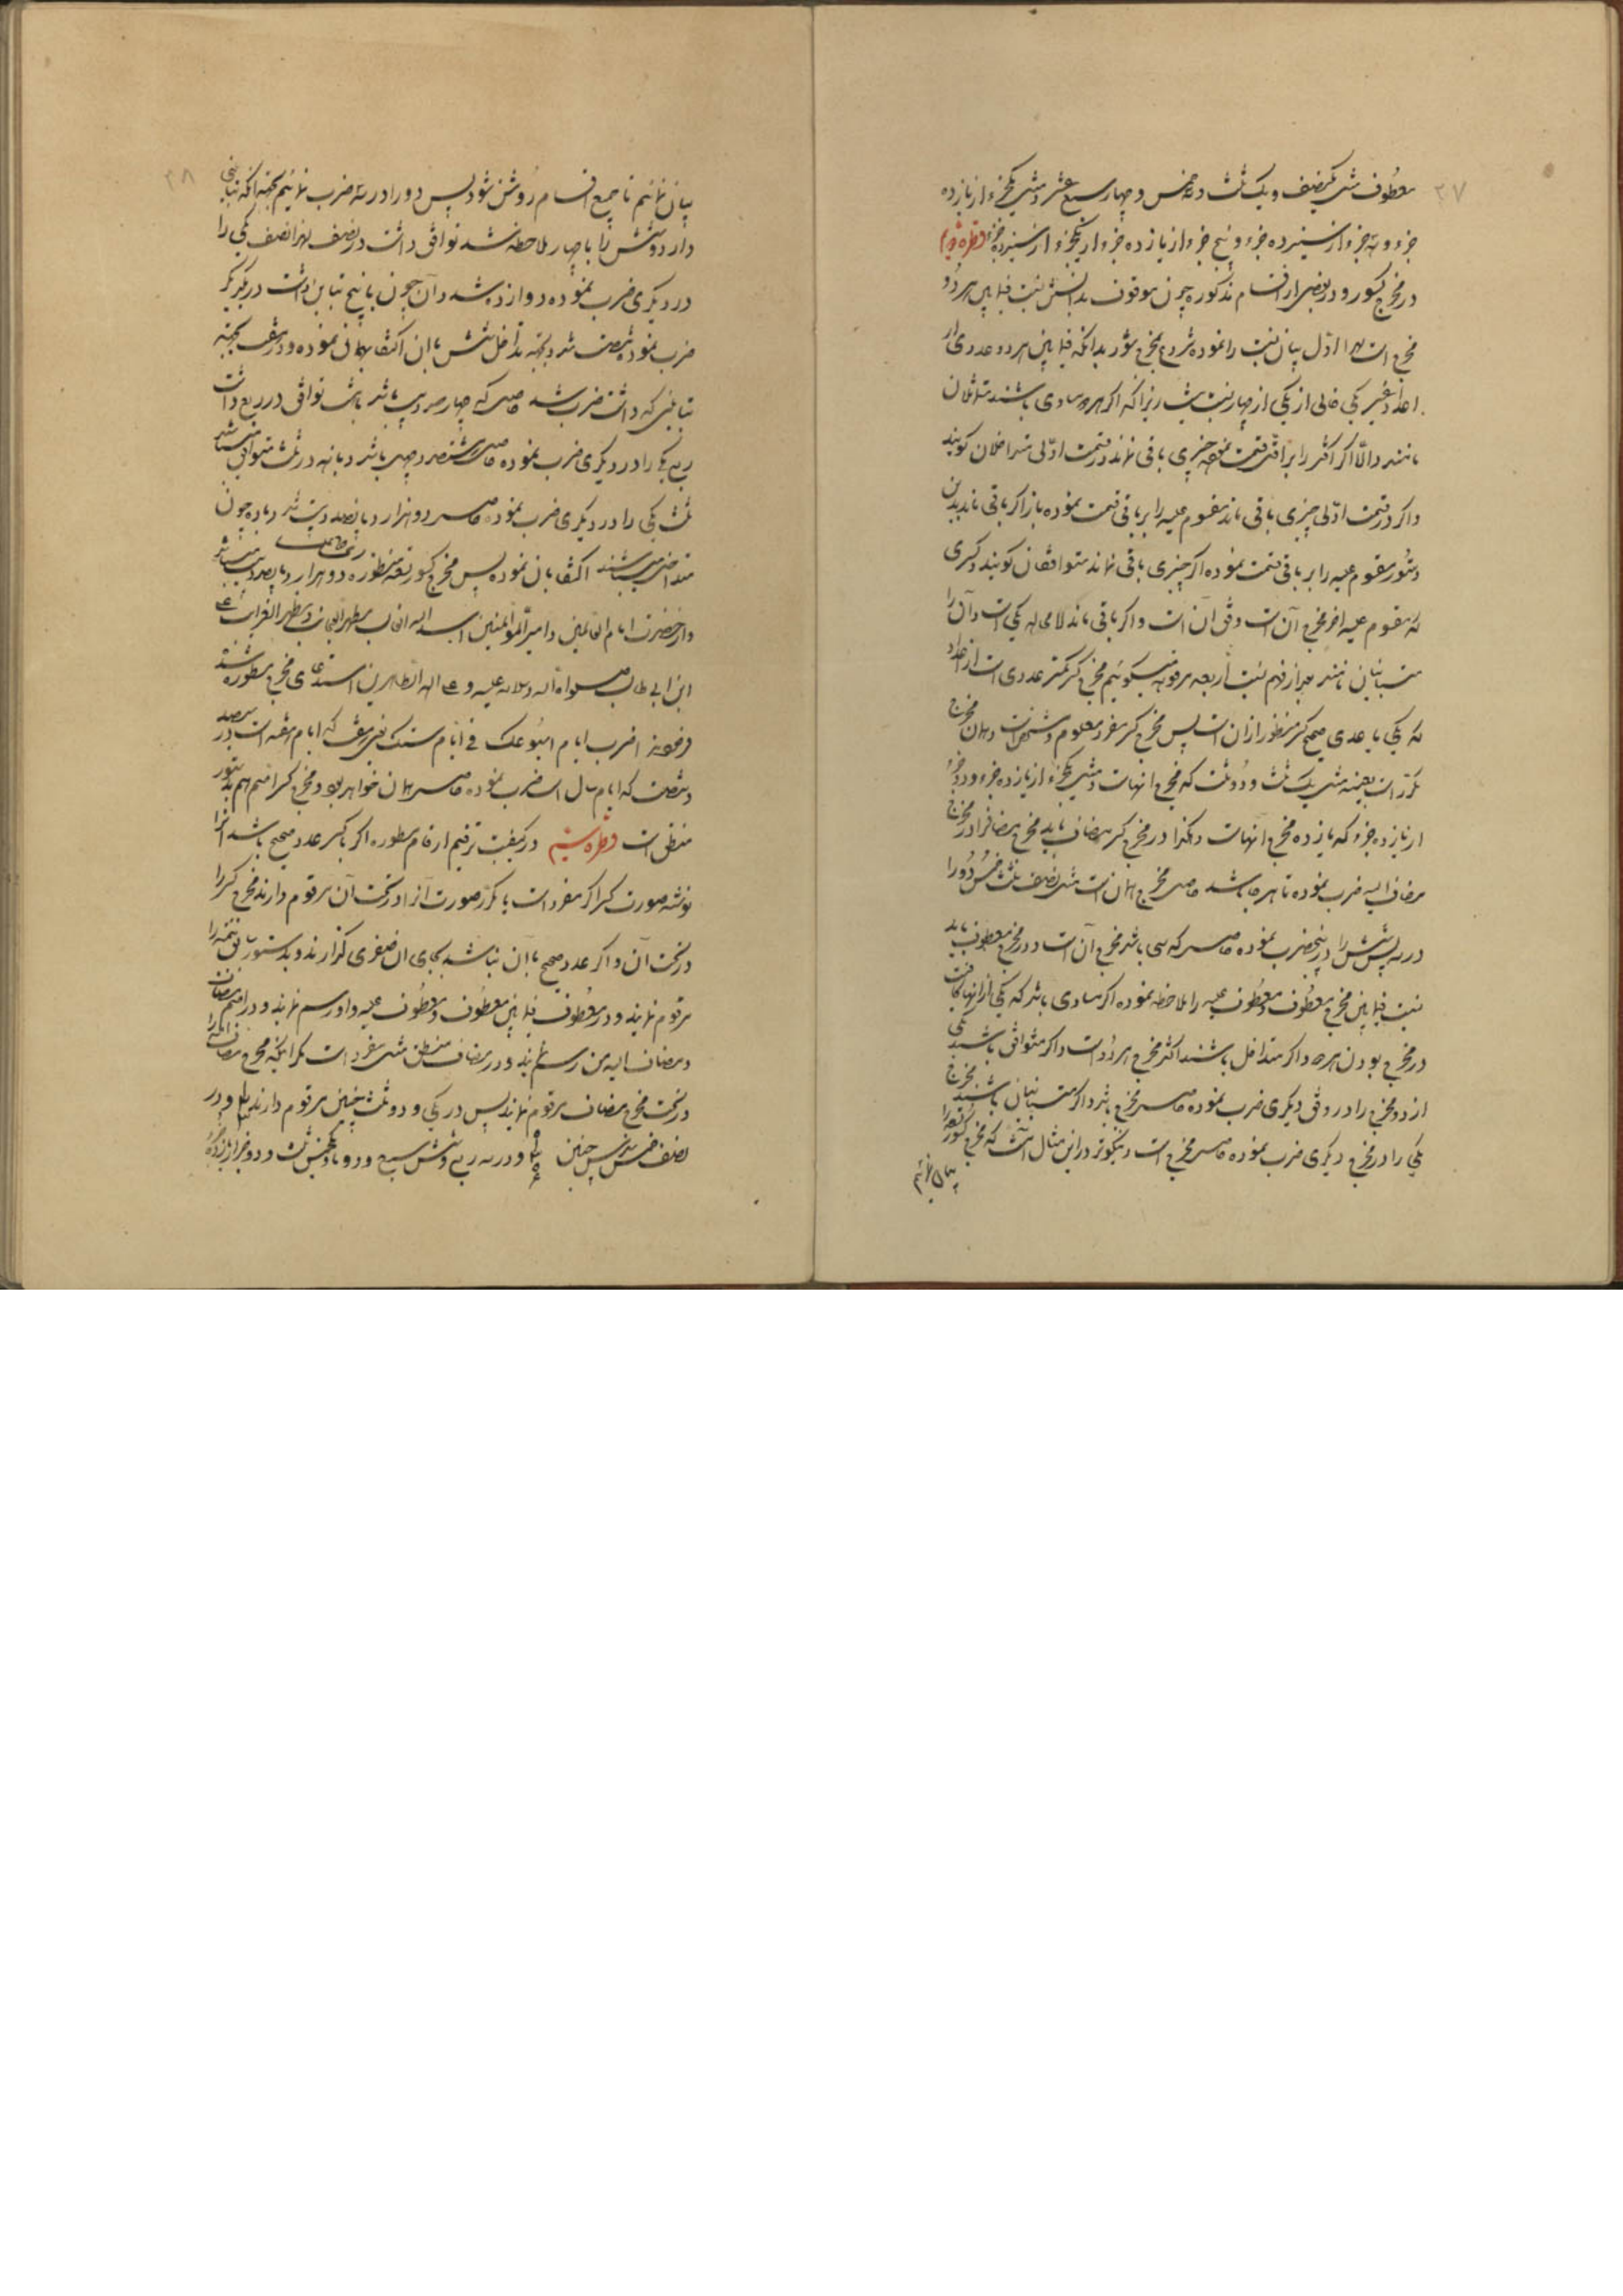 ۳۷
معطوف مثل یکنصف و یک ثلث و سه خمس و چهار سبع عشر و مثل یکجزء از یازده
جزء و سه جزء از سیزده جزء و پنج جزء از یازده جزء از یکجزء از سیزده جزء
در مخرج کسور و در بعضی از اقسام مذکوره چون موقوف بدانستن نسبت فیمابین هر دو
مخرج است لهذا اول بیان نسبت را نموده شروع بمخرج شود بدانکه فیمابین هر دو عددی از
اعداد غیر یکی خالی از یکی از چهار نسبت نیست زیرا که اگر هر دو مساوی باشند متماثلان
نامند و الّا اگر اکثر را بر اقل قسمت نموده چیزی باقی نماند در قسمت اولی متداخلان گویند
و اگر در قسمت اولی چیزی باقی ماند مقسوم علیه را بر باقی قسمت نموده باز اگر باقی ماند بدین
دستور مقسوم علیه را بر باقی قسمت نموده اگر چیزی باقی نماند متوافقان گویند و کسری
که مقسوم علیه آخر مخرج آن است وفق آن است و اگر باقی ماند لامحاله یکی است و آن را
متباینان نامند بعد از فهم نسبت اربعه مرقومه میگوئیم مخرج کسر کمتر عددی است از اعداد
که یکی با عددی صحیح کسر منظور از آن است پس مخرج کسر مفرد معلوم و مشخص است و همان مخرج
مکرر است بعینه مثل یک ثلث و دو ثلث که مخرج آنهاست و مثل یکجزء از یازده جزء و دو جزء
از یازده جزء که یازده مخرج آنهاست و هکذا در مخرج کسر مضاف باید مخرج مضاف را در مخرج
مضاف الیه ضرب نموده تا هر چه باشد حاصل مخرج همان است مثل نصف ثلث خمس دو را
در سه پس شش را در پنج ضرب نموده حاصل که سی باشد مخرج آن است و در مخرج معطوف باید
نسبت فیمابین مخرج معطوف و معطوف علیه را ملاحظه نموده اگر مساوی باشد که یکی از آنها کافیست
در مخرج بودن هر دو و اگر متداخل باشند اکثر مخرج هر دو است و اگر متوافق باشند یکی
از دو مخرج را در وفق دیگری ضرب نموده حاصل مخرج باشد و اگر متباینان باشند مخرج
یکی را در مخرج دیگری ضرب نموده حاصل مخرج است و نیکوتر در این مثال آنست که مخرج کسور تسعه را
بیان نمائیم
۳۸
بیان نمائیم تا جمیع اقسام روشن شود پس دو را در سه ضرب نمائیم بجهة آنکه تباینی
دارد و شش را با چهار ملاحظه شد توافق داشت در نصف لهذا نصف یکی را
در دیگری ضرب نموده دوازده شد و آن چون با پنج تباین داشت در یکدیگر
ضرب نموده شصت شد و بجهة تداخل شش با آن اکتفا بهمان نموده و در هفت بجهة
تباینی که داشت ضرب شد حاصل که چهار صد و بیست باشد با هشت توافق در ربع داشت
ربع یکی را در دیگری ضرب نموده حاصل هشتصد و چهل باشد و با نه در ثلث متوافق میباشد
ثلث یکی را در دیگری ضرب نموده حاصل دو هزار و پانصد و بیست شد و با ده چون
متداخل میباشند اکتفا بآن نموده پس مخرج کسور تسعه منظوره دو هزار و پانصد و بیست میباشد
و از حضرت امام العالمین و امیر المؤمنین اسد الله الغالب مظهر العجایب و مظهر الغرایب علی
ابن ابی طالب صلوات الله و سلامه علیه و علی اله الطاهرین استدعای مخرج مسطوره شد
فرمودند اضرب ایام اسبوعک فی ایام سنتک یعنی هفت که ایام هفته است در سیصد
و شصت که ایام سال است ضرب نموده حاصل همان خواهد بود و مخرج کسر اصم هم بدستور
منطق است قطره ششم در کیفیت ترقیم ارقام مسطوره اگر با کسر عدد صحیح باشد آنرا
نوشته صورت کسر اگر مفرد است یا مکرر صورت آنرا در تحت آن مرقوم دارند و مخرج کسر را
در تحت آن و اگر عدد صحیح با آن نباشد بجای آن صفری گذارند و بدستور سابق تتمه را
مرقوم نمایند و در معطوف فیمابین معطوف و معطوف علیه واو رسم نمایند و در اصم مضاف
و مضاف الیه من رسم نمایند و در مضاف منطق مثل مفرد است مگر اینکه مخرج مضاف الیه را
در تحت مخرج مضاف مرقوم نمایند پس در یکی و دو ثلث چنین مرقوم دارند و در
نصف خمس سدس چنین و در سه ربع و شش سبع و دو ثلث و دو جزء از یازده